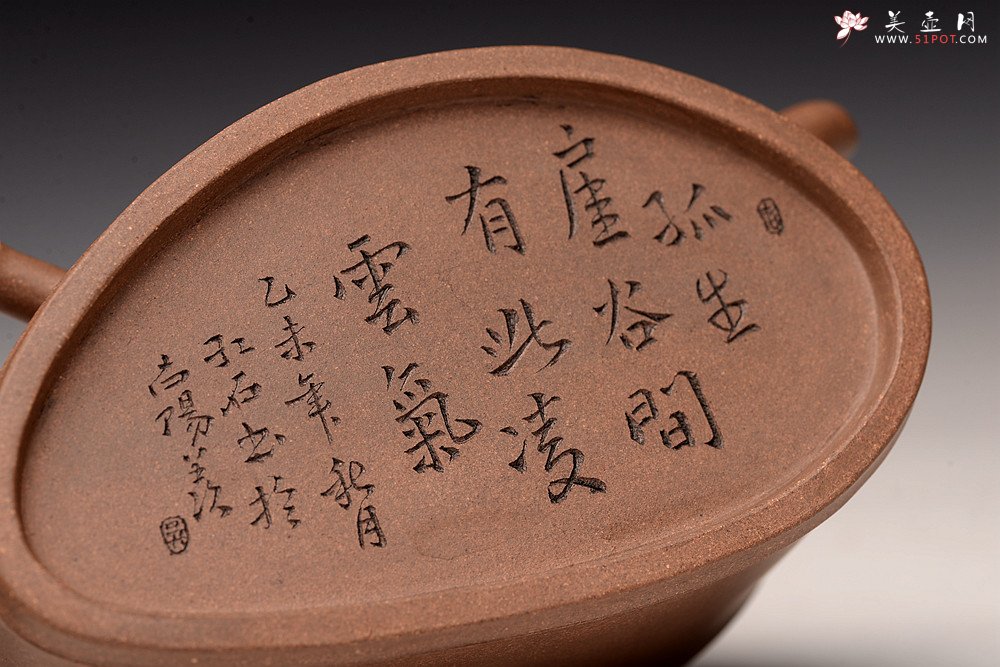 美壶网
WWW.51POT.COM
孤生
崖谷間
有此凌
雲氣
乙未年秋月
红石书於
古陽羡